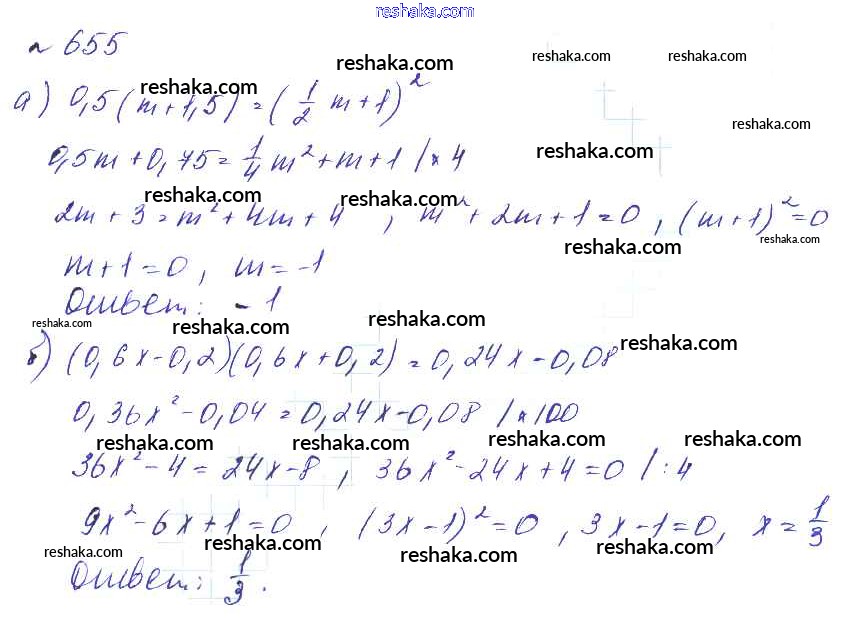 reshaka.com
№ 655
reshaka.com reshaka.com reshaka.com reshaka.com
а) 0,5(m+1,5) = (1/2 m+1)²
reshaka.com
0,5m+0,75 = 1/4 m²+m+1 /×4
reshaka.com
reshaka.com reshaka.com
2m+3 = m²+4m+4 , m²+2m+1=0 , (m+1)²=0
reshaka.com reshaka.com
m+1=0, m=-1
Ответ: -1
reshaka.com reshaka.com reshaka.com
б) (0,6x-0,2)(0,6x+0,2) = 0,24x-0,08
reshaka.com
0,36x²-0,04 = 0,24x-0,08 /×100
reshaka.com reshaka.com reshaka.com reshaka.com
36x²-4 = 24x-8 , 36x²-24x+4=0 /:4
9x²-6x+1=0 , (3x-1)²=0 , 3x-1=0, x=1/3
reshaka.com reshaka.com reshaka.com reshaka.com
Ответ: 1/3.